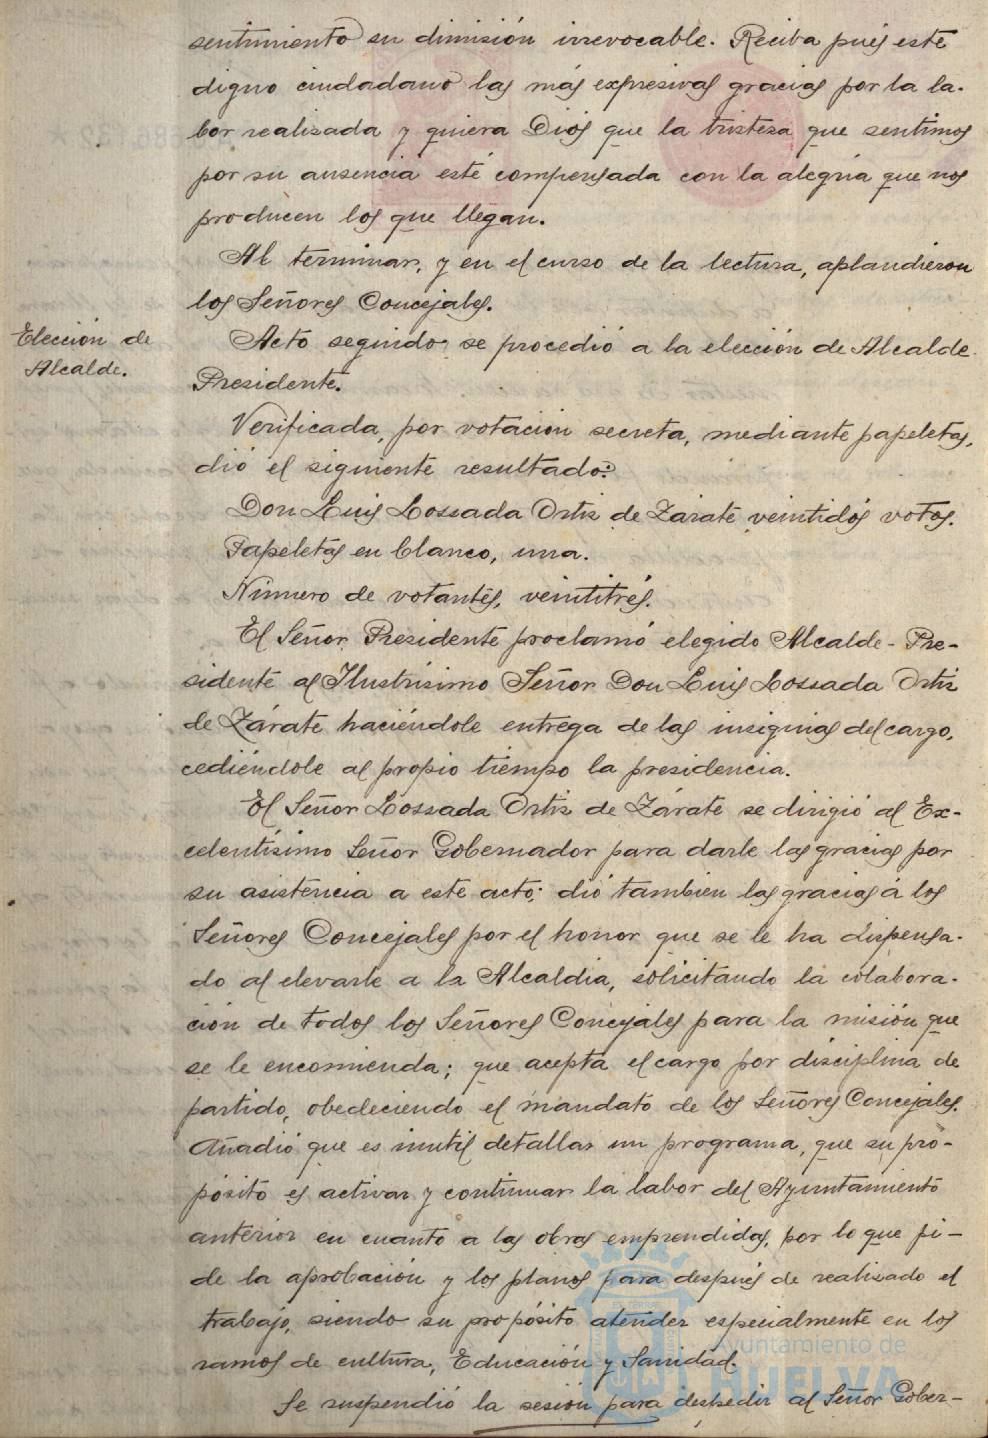 sentimiento su dimisión irrevocable. Reciba pués este
digno ciudadano las más expresivas gracias por la la-
bor realizada y quiera Dios que la tristeza que sentimos
por su ausencia esté compensada con la alegría que nos
producen los que llegan.
Al terminar, y en el curso de la lectura, aplaudieron
los Señores Concejales.
Elección de
Alcalde.
Acto seguido se procedió a la elección de Alcalde
Presidente.
Verificada, por votación secreta, mediante papeletas,
dió el siguiente resultado:
Don Luis Lossada Ortiz de Zárate veintidós votos.
Papeletas en blanco, una.
Número de votantes, veintitrés.
El Señor Presidente proclamó elegido Alcalde-Pre-
sidente al Ilustrísimo Señor Don Luis Lossada Ortiz
de Zárate haciéndole entrega de las insignias del cargo,
cediéndole al propio tiempo la presidencia.
El Señor Lossada Ortiz de Zárate se dirigió al Ex-
celentísimo Señor Gobernador para darle las gracias por
su asistencia a este acto; dió tambien las gracias á los
Señores Concejales por el honor que se le ha dispensa-
do al elevarle a la Alcaldía, solicitando la colabora-
ción de todos los Señores Concejales para la misión que
se le encomienda; que acepta el cargo por disciplina de
partido, obedeciendo el mandato de los Señores Concejales.
Añadió que es inutil detallar un programa, que su pro-
pósito es activar y continuar la labor del Ayuntamiento
anterior en cuanto a las obras emprendidas, por lo que pi-
de la aprobación y los planos para después de realizado el
trabajo, siendo su propósito atender especialmente en los
ramos de cultura, Educación y Sanidad.
Se suspendió la sesión para despedir al Señor Gober-
Ayuntamiento de
HUELVA